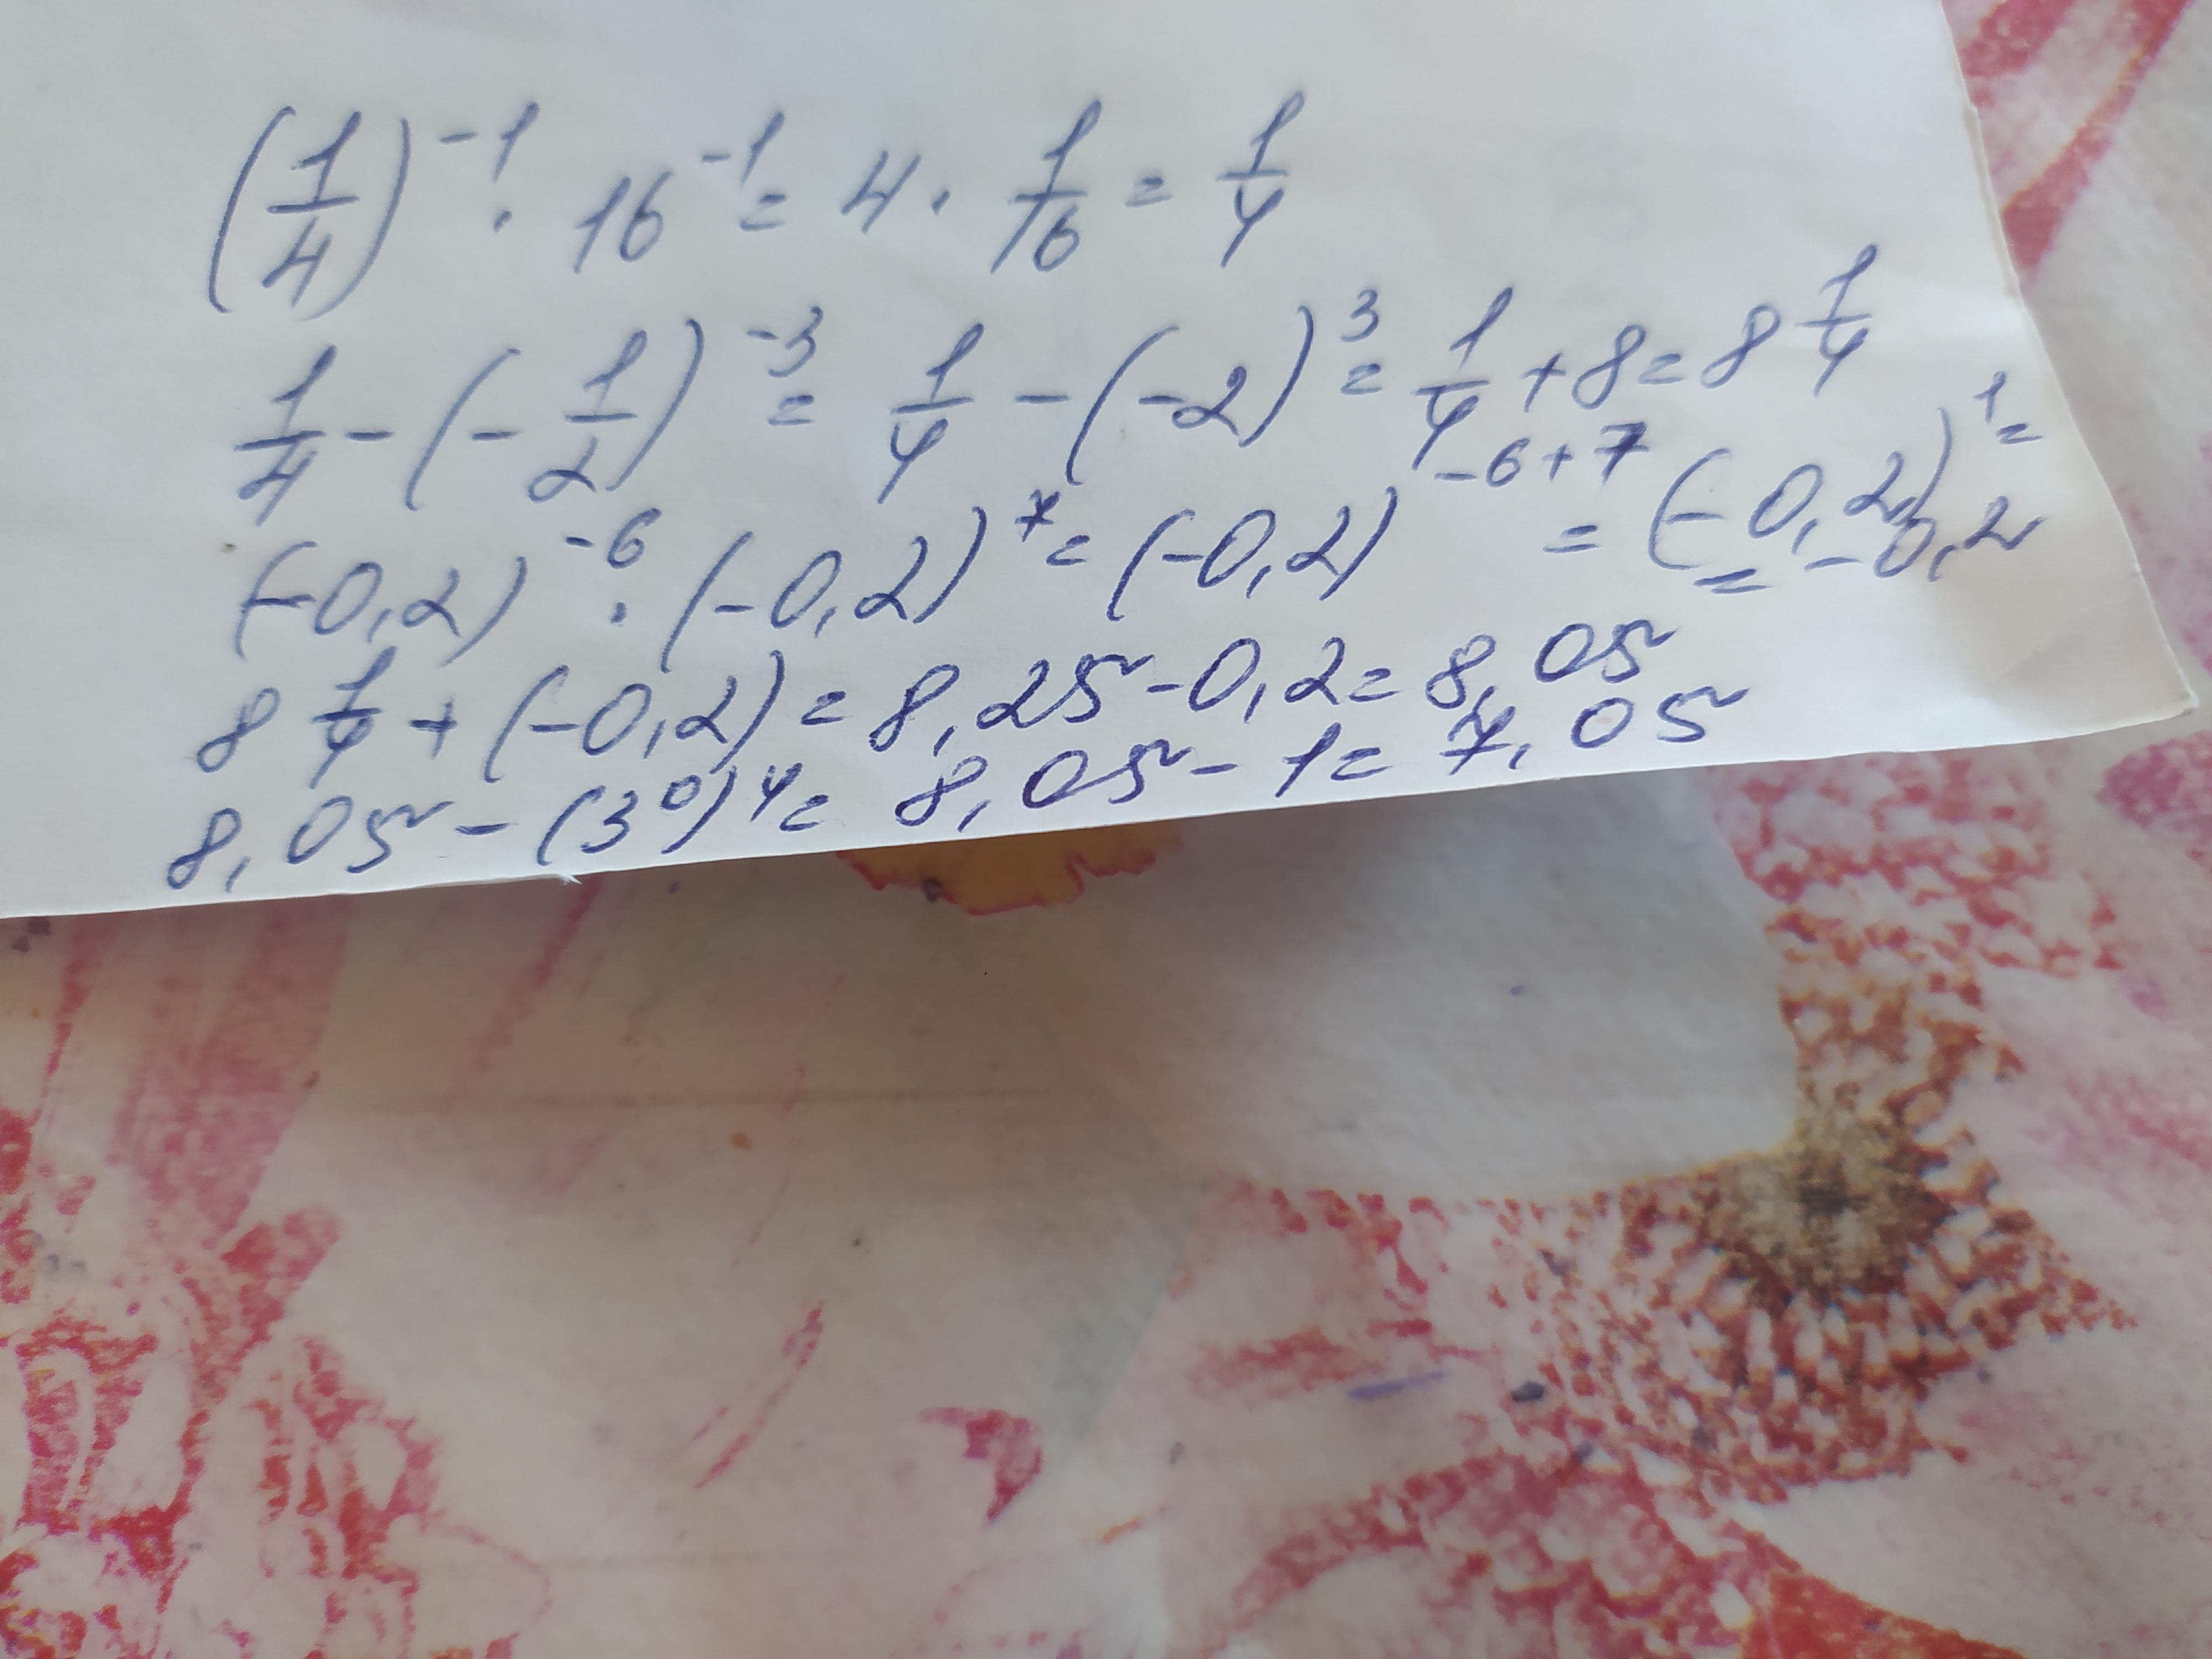 (1/4)⁻¹ · 16⁻¹ = 4 · 1/16 = 1/4
1/4 - (-1/2)⁻³ = 1/4 - (-2)³ = 1/4 + 8 = 8 1/4
(-0,2)⁻⁶ · (-0,2)⁷ = (-0,2)⁻⁶⁺⁷ = (-0,2)¹ =
= -0,2
8 1/4 + (-0,2) = 8,25 - 0,2 = 8,05
8,05 - (3⁰)⁴ = 8,05 - 1 = 7,05